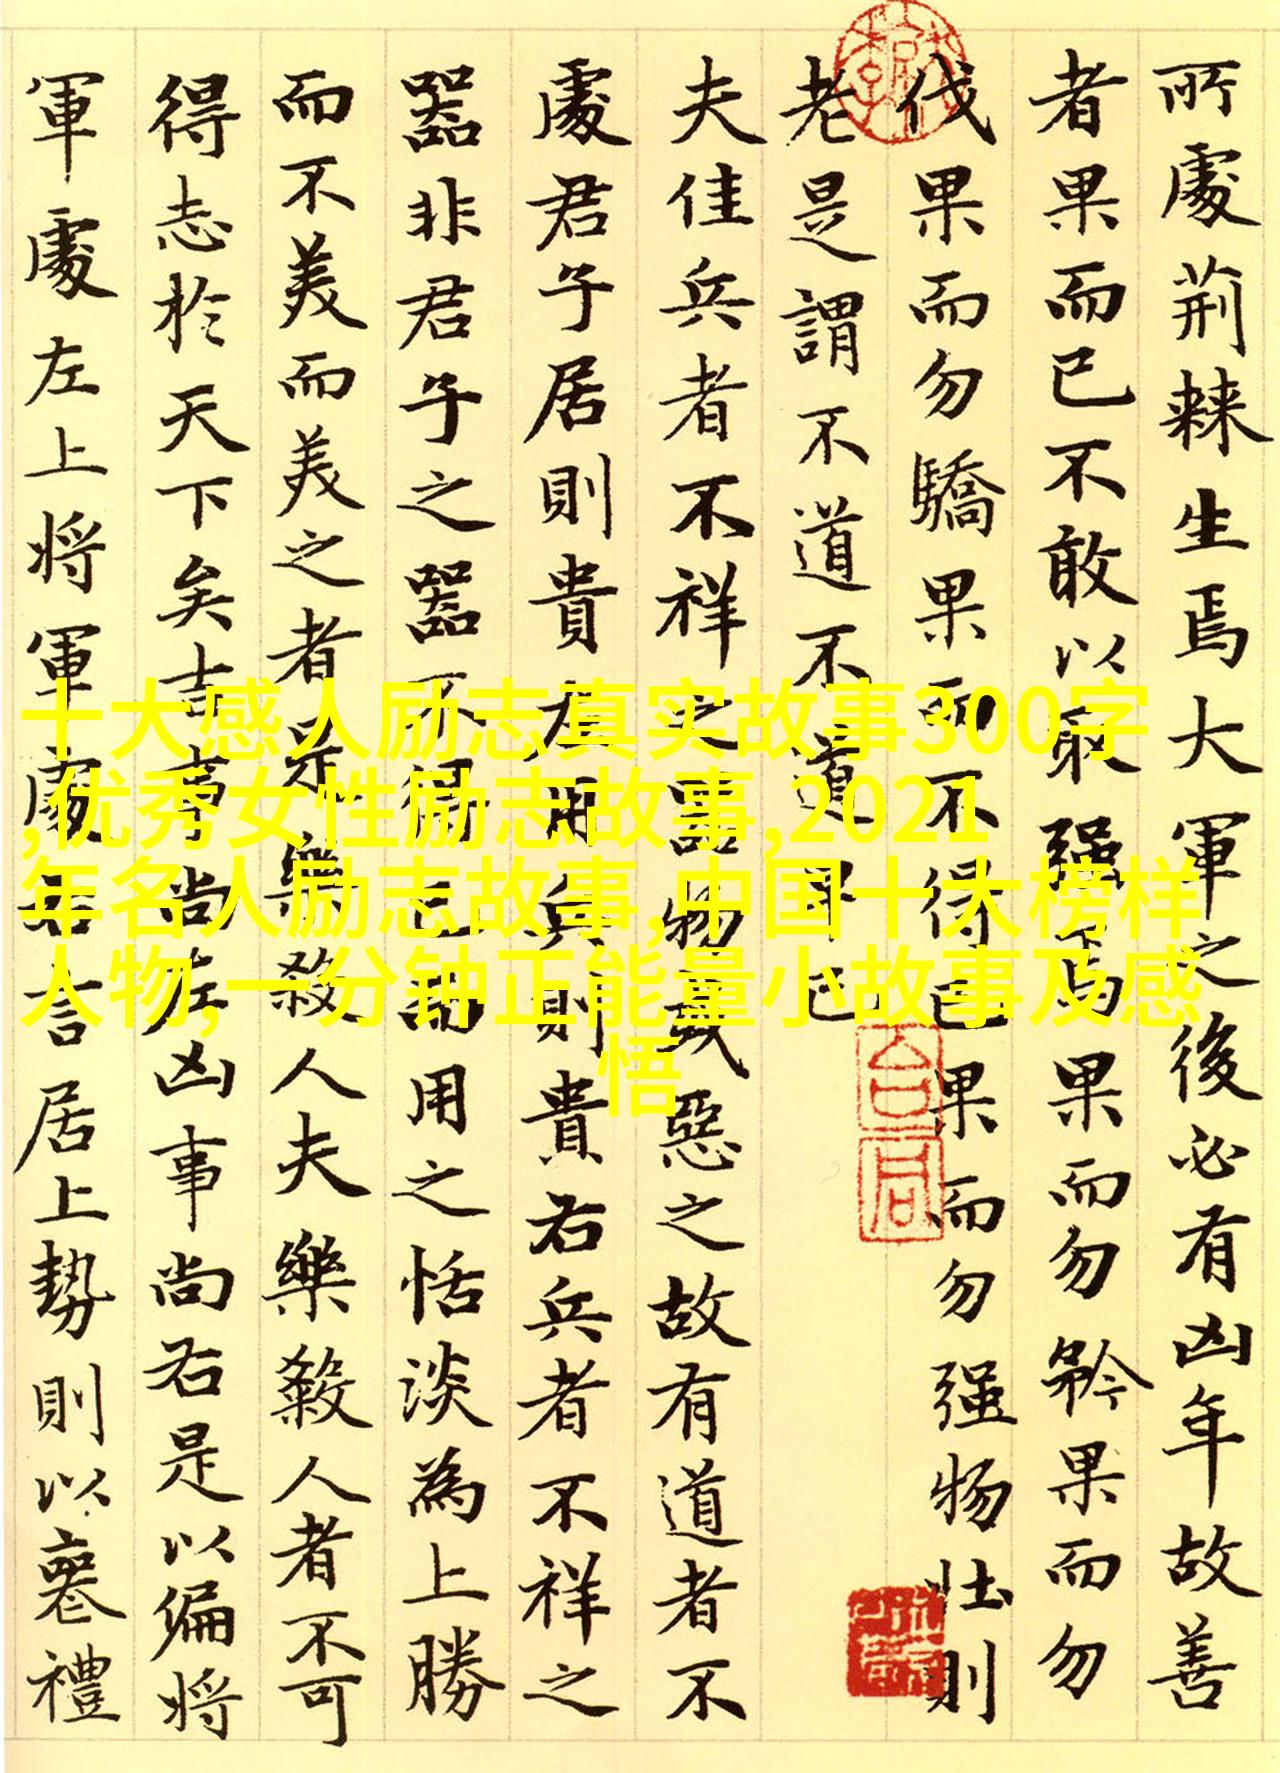 所處荊棘生焉大軍之後必有凶年故善
者果而已不敢以取强焉果而勿矜果而勿
伐果而勿驕果而不得已果而勿强物壮則
老是謂不道不道早已
夫佳兵者不祥之器物或惡之故有道者不
處君子居則貴左用兵則貴右兵者不祥之
器非君子之器不得已而用之恬淡為上勝
而不美而美之者是樂殺人夫樂殺人者不可
得志於天下矣吉事尚左凶事尚右是以偏將
軍處左上將軍處右言居上勢則以喪禮
十大感人励志真实故事300字
,优秀女性励志故事,2021
年名人励志故事,中国十大榜样
人物,一分钟正能量小故事及感
悟